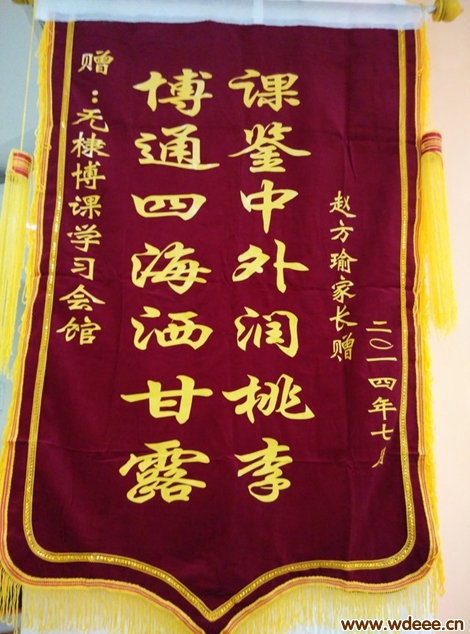 赠：无棣博课学习会馆
博通四海洒甘露
课鉴中外润桃李
赵方瑜家长赠
二〇一四年七月
www.wdeee.cn